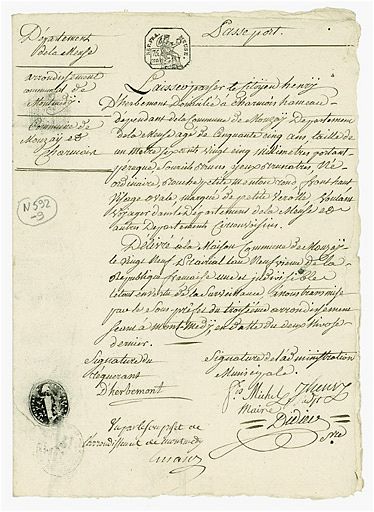 Passe port.
Département
de la Meuse
arrondissement
communal de
Montmédy
Commune de
Mouzaÿ et
Charmois
N 592
-9
Laissez passer le Citoyen henrÿ
D'herbemont Domicilié a charmois hameau
dependant de la Commune de Mouzaÿ Departement
de la Meuse agé de Cinquante cinq ans taille de
un metre sept cent vingt cinq millimetres portant
perruque Sourcils bruns yeux
ordinaire bouche petite menton rond front haut
visage ovale marqué de petite verole voulant
voyager dans le departement de la Meuse et
autres Departements Circonvoisins
Délivré à la Maison Commune de Mouzaÿ
le vingt Neuf L'an Neuvieme de la
Republique francaise une et indivisible
par le Sous préfet du troisieme arrondissement
seant a montmedÿ en datte du deux Nivose
dernier.
Signature du
Requerant
D'herbemont
Signature de l'administration
Municipale.
Michel
Maire
henry
Didier
Vu par le Sous préfet de
l'arrondissement de montmédy